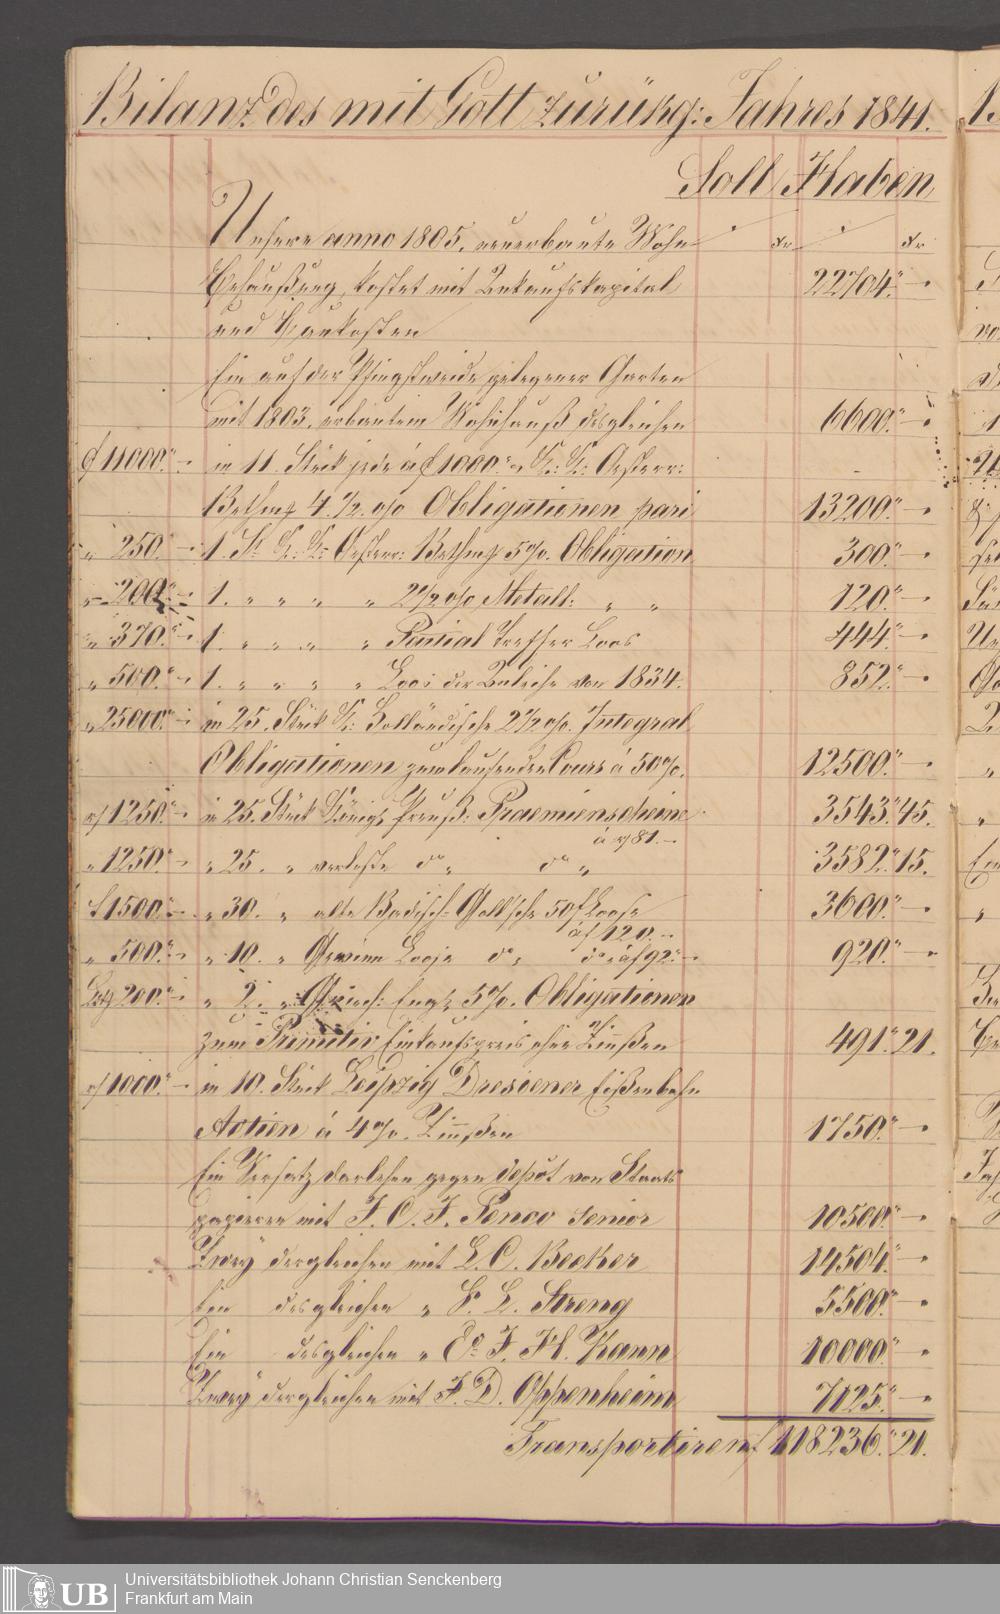 Bilanz des mit Gott zurükg: Jahres 1841.
Soll Haben
Unsere anno 1805. neuerbaute Wohn- xr xr
Behaußung, kostet mit Ankaufskapital 22704." —
und Baukosten
Ein auf der Pfingstweide gelegener Garten
mit 1803. erbautem Wohnhauß desgleichen 6600." —
f 11000." — in 11. Stück jede à f 1000." — K: K: Oesterr:
Bethm: 4 1/2 o/o Obligationen pari 13200." —
" 250. — 1. St. K: K: Oesterr: Bethm: 5 %. Obligation 300." —
" 200." — 1. " " " " 2 1/2 o/o Metall: " " 120." —
" 370." — 1. " " " " Partial Treffer Loos 444." —
" 500." — 1. " " " " Loos der Anleihe von 1834. 852." —
" 25000." — in 25. Stück K: Holländische 2 1/2 o/o. Integral
Obligationen zum laufenden Cours à 50 %. 12500." —
rf 1250." — in 25. Stück Königl. Preuß: Praemienscheine 3543." 45.
à rf 81. —
" 1250." — " 25. " verloste do " do " 3582." 15.
f 1500." — " 30. " alte Badisch Gollsche 50 f Loose 3600." —
à f 120. —
" 500." — " 10. " Gewinn Loose do " do à f 92." — 920." —
" 200." — " 2. " Griech: Engl: 5 %. Obligationen
zum Primitiv Einkaufspreis ohne Zinßen 491." 21.
rf 1000." — in 10. Stück Leipzig Dresdener Eißenbahn
Actien à 4 %. Zinßen 1750." —
Ein Versatz darlehen gegen depôt von Staats
papieren mit J. C. J. Penco Senior 10500." —
Zwey dergleichen mit L. C. Becker 14504." —
Ein desgleichen " F. L. Streng 5500." —
Ein desgleichen " J. H. Kann 10000." "
Zwey dergleichen mit J. D. Oppenheim 7125." —
Transportiren f 118236." 21.
UB
Universitätsbibliothek Johann Christian Senckenberg
Frankfurt am Main